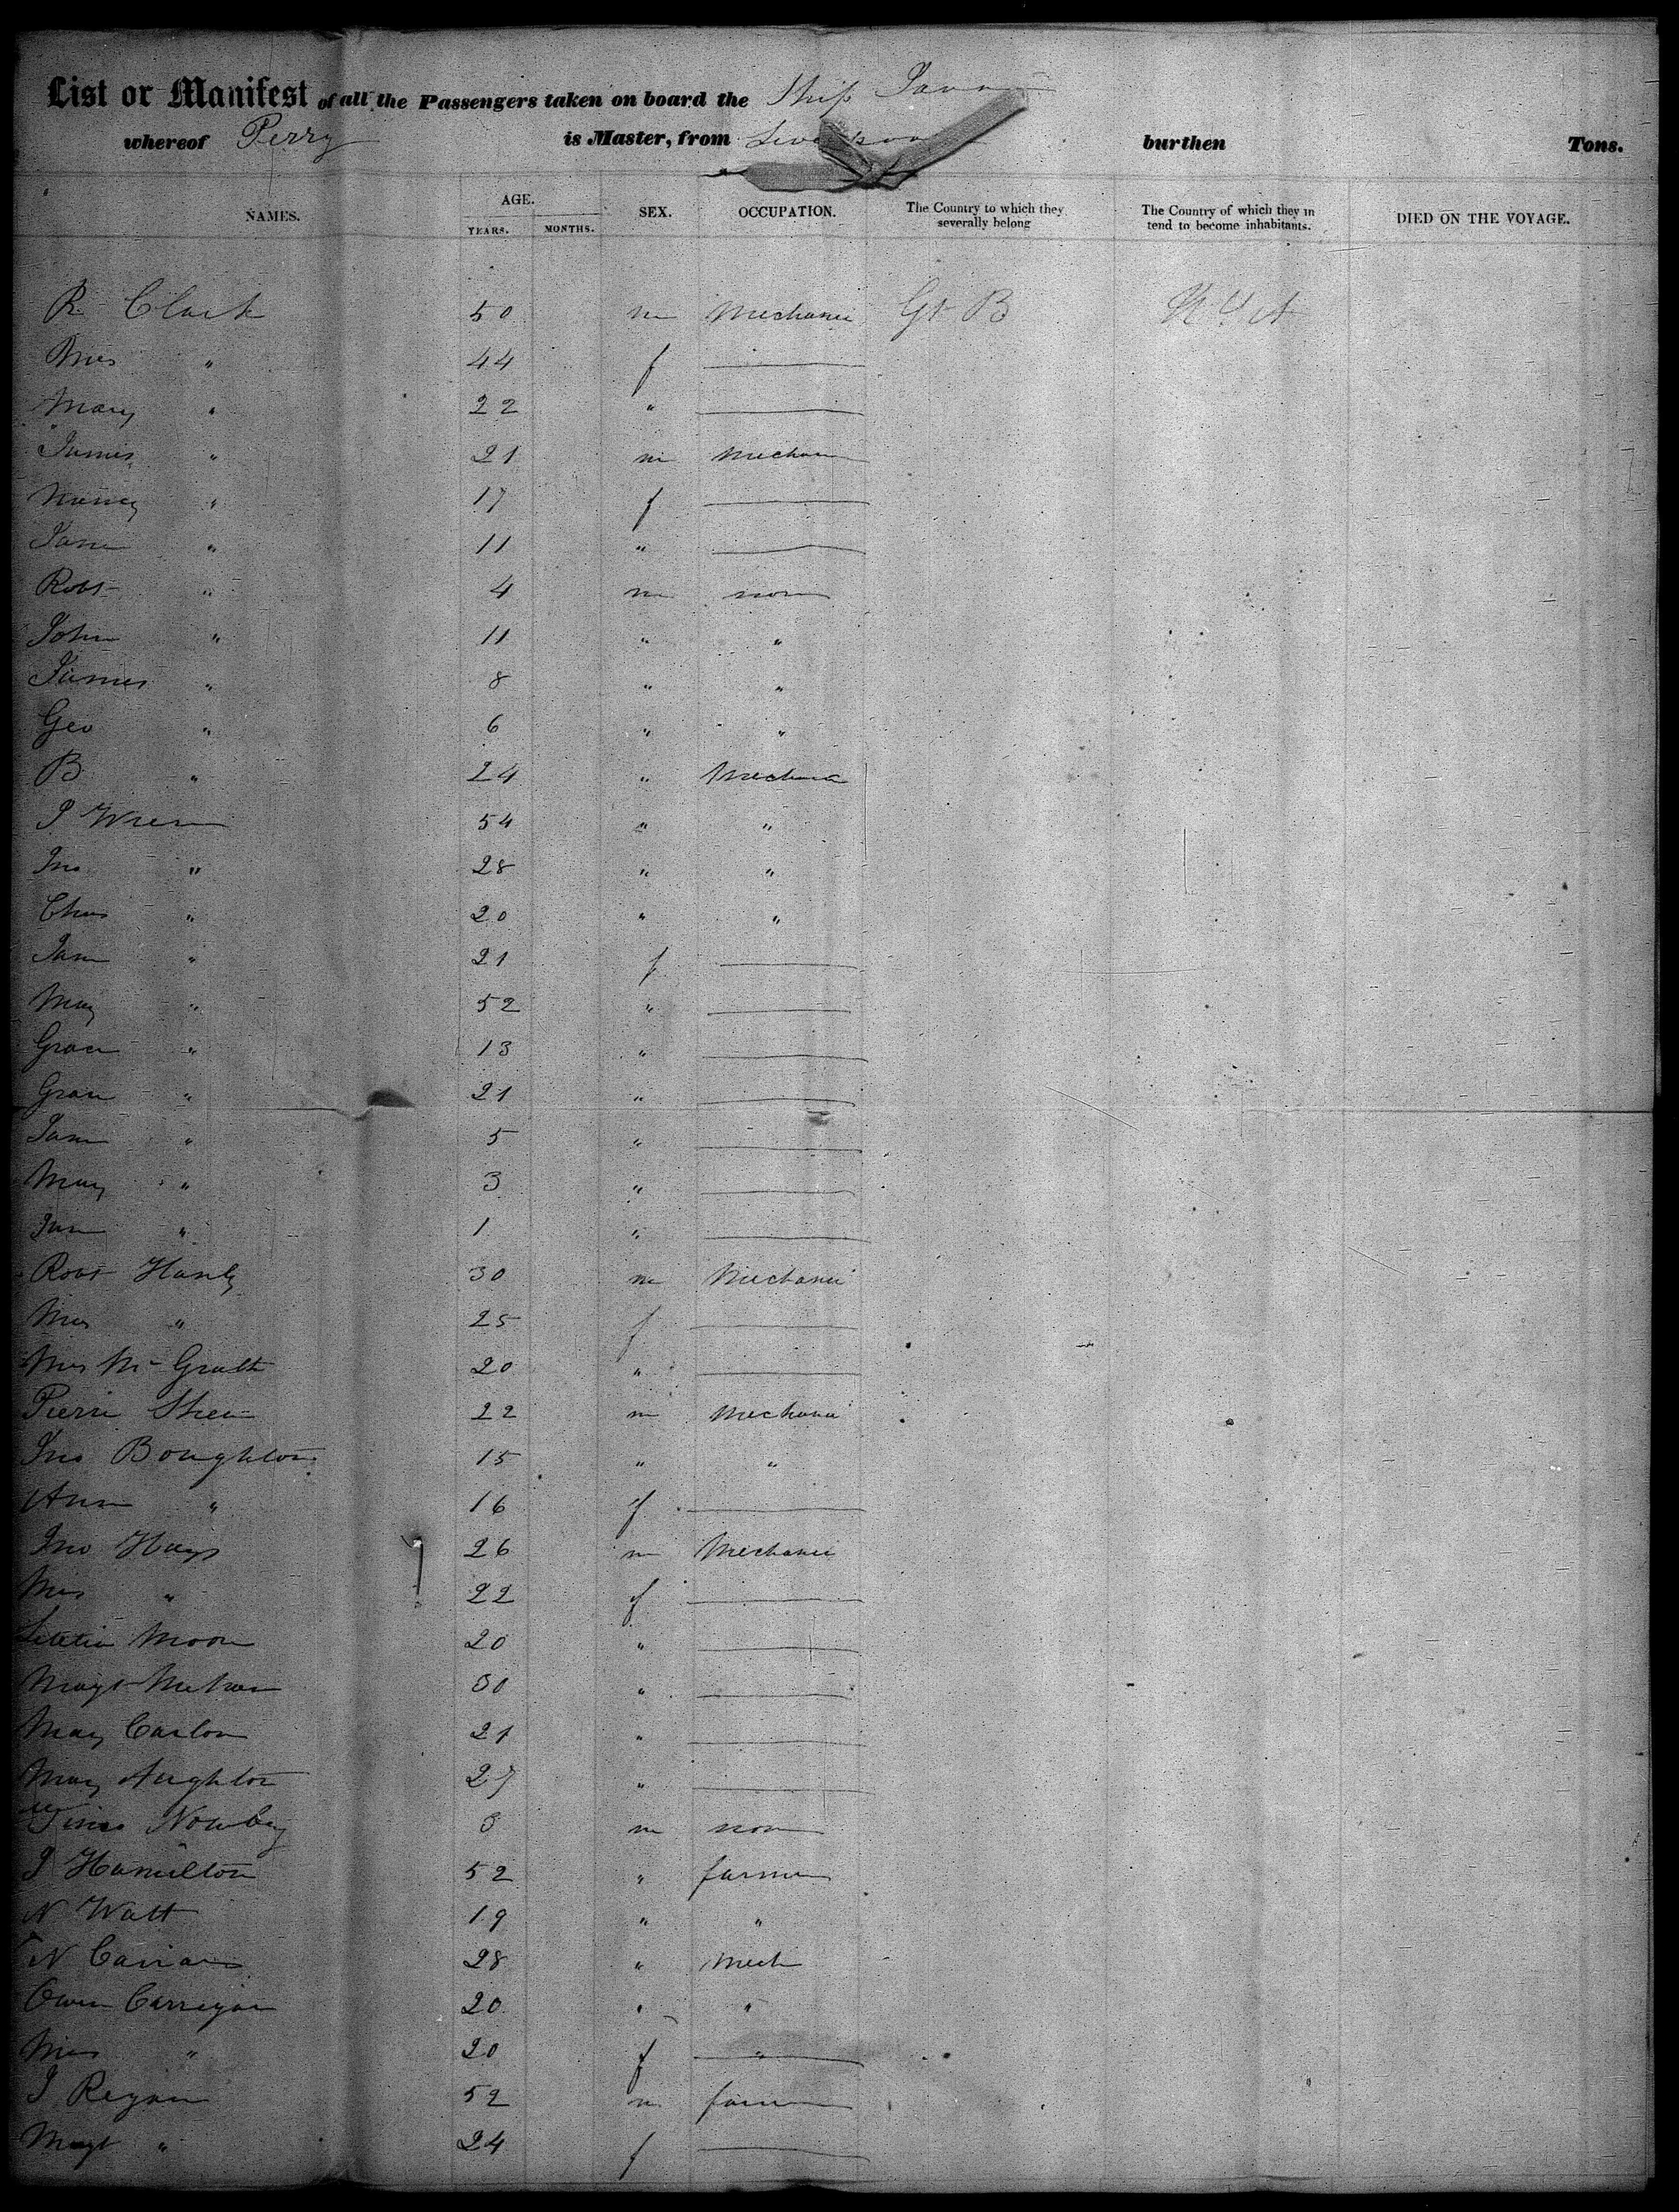 List or Manifest of all the Passengers taken on board the Ship
whereof Perry is Master, from burthen Tons.
NAMES. AGE. YEARS. MONTHS. SEX. OCCUPATION. The Country to which they severally belong The Country of which they in tend to become inhabitants. DIED ON THE VOYAGE.
R Clark 50 m Mechanic Gt B
Mrs " 44 f
Mary " 22 "
James " 21 m
Nancy " 17 f
Jane " 11 "
Robt " 4 m non
John " 11 " "
James " 8 " "
Geo " 6 " "
B " 24 "
54 " "
Jno " 28 " "
Chas " 20 " "
Jane " 21 f
Mary " 52 "
Grace " 13 "
Grace " 21 "
Jane " 5 "
Mary " 3 "
" 1 "
Robt 30 m Mechanic
Mrs " 25 f
Mrs McGrath 20 "
Pierre 22 m Mechanic
Jno Boughton 15 " "
Ann " 16 f
Jno Hays 26 m Mechanic
Mrs " 22 f
Letitia Moore 20 "
Margt 30 "
Mary Carlon 21 "
Mary Aughton 27 "
3 m non
J Hamilton 52 " farmer
N Watt 19 " "
N 28 " Mech
Owen Carrigan 20 " "
Mrs " 20 f "
J Regan 52 m farmer
Margt " 24 f